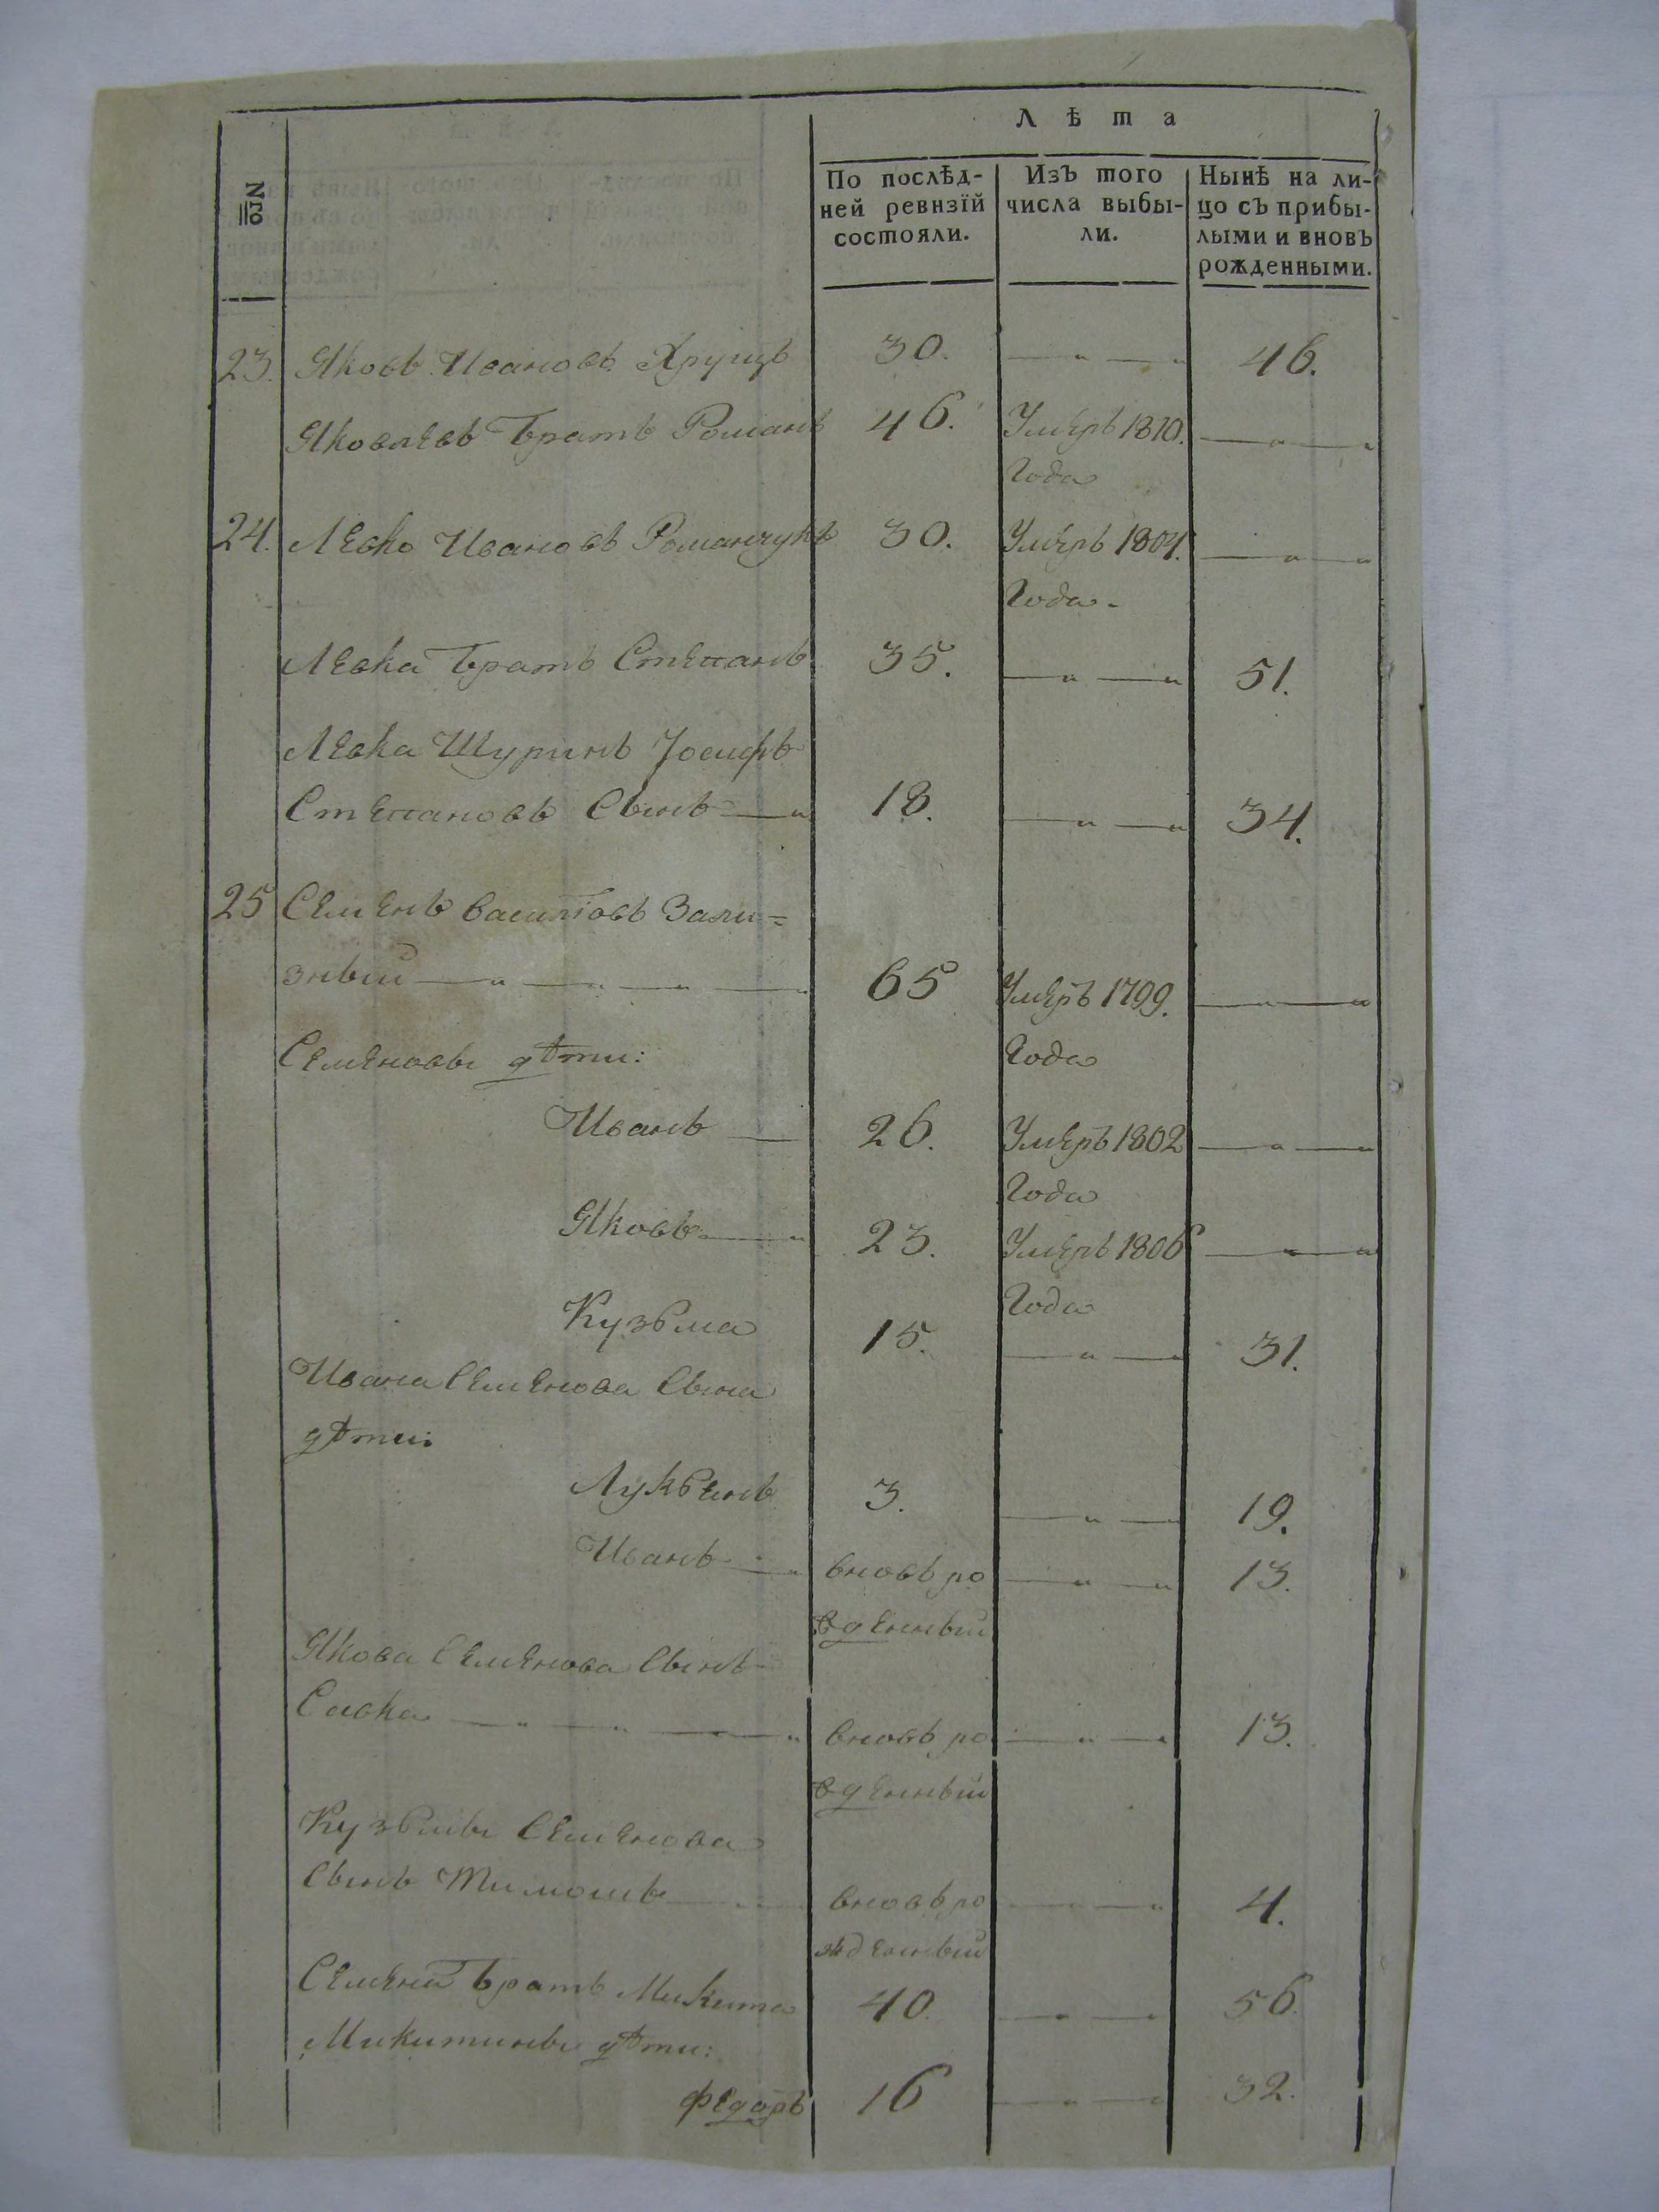 Лѣта
№
По послѣд- Изъ того Нынѣ на ли-
ней ревизїй числа выбы- цо съ прибы-
состояли. ли. лыми и вновъ
рожденными.
23. Яковъ Ивановъ Хрущъ 30. — „ — „ 46.
Яковлевъ братъ Романъ 46. Умеръ 1810. — „ — „
Года
24. Левко Ивановъ Романчукъ 30. Умеръ 1804. — „ — „
Года.
Левка братъ Степанъ 35. — „ — „ 51.
Левка Шуринъ Іосифъ
Степановъ Сынъ — „ 18. — „ — „ 34.
25 Семенъ василїовъ Зали=
зный — „ — „ — „ — „ 65 Умеръ 1799. — „
Семеновы дѣти: Года
Иванъ — 26. Умеръ 1802 — „ — „
Года
Яковъ — „ 23. Умеръ 1806 — „ — „
Кузьма Года
15. — „ — „ 31.
Ивана Семенова Сына
дѣти:
Лукьянъ 3. — „ — „ 19.
Иванъ — „ вновь ро — „ — „ 13.
жденный
Якова Семенова Сынъ
Савка — „ — „ — „ вновь ро — „ — „ 13.
жденный
Кузьмы Семенова
Сынъ Тимошъ вновь ро — „ — „ 4.
жденный
Семена братъ Микита 40. — „ — „ 56.
Микитины дѣти:
Федоръ 16 — „ — „ 32.